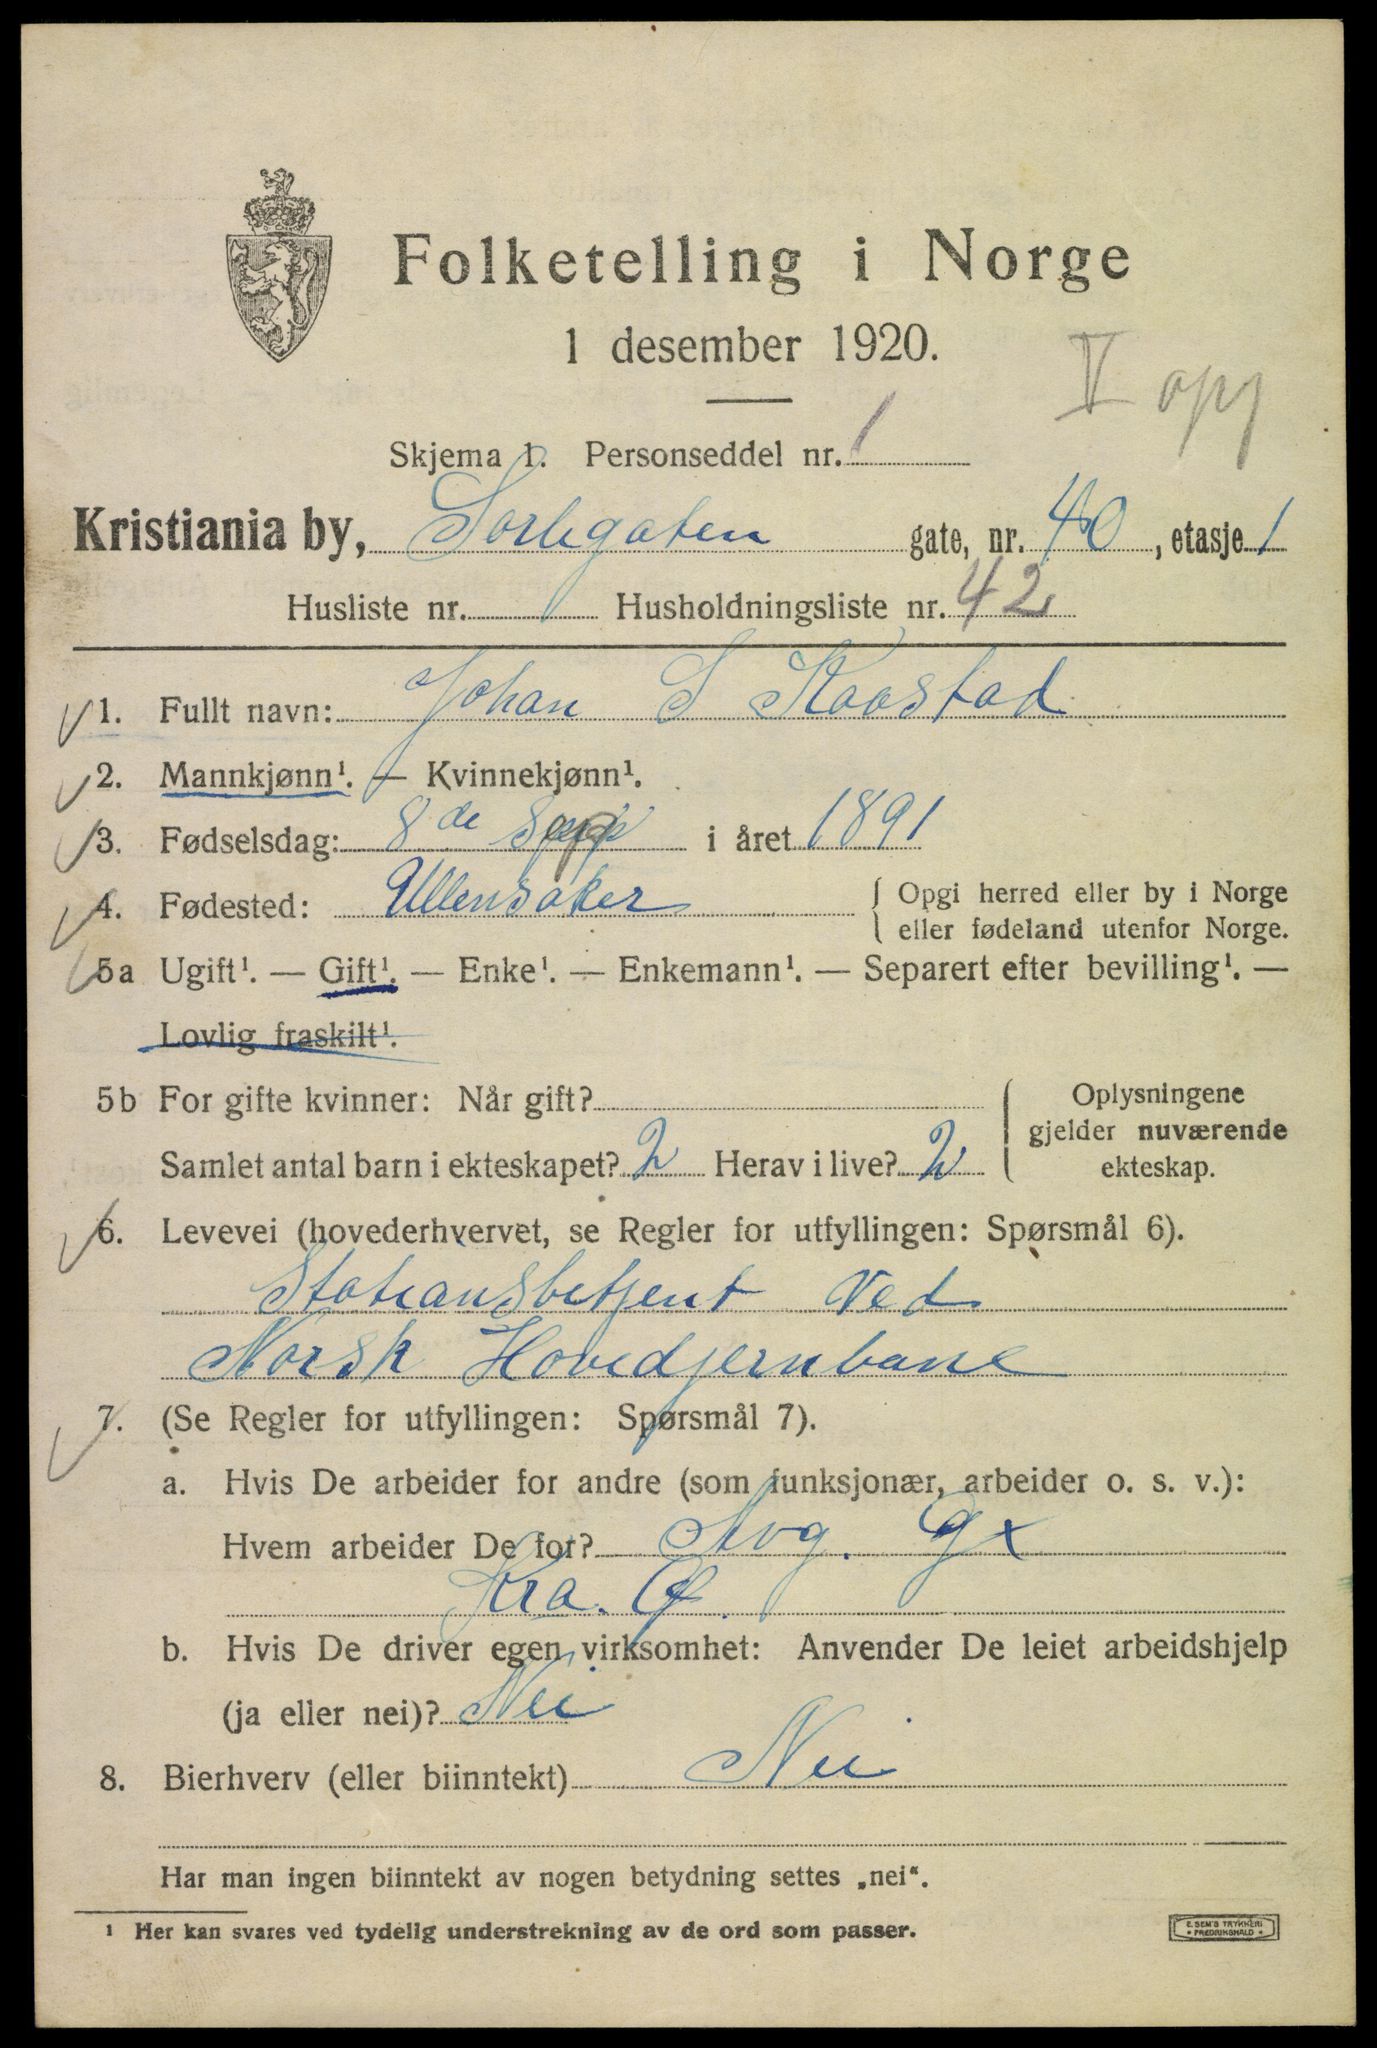 Folketelling i Norge
1 desember 1920.
V opg
Skjema 1. Personseddel nr. 1
Kristiania by, Sorligaten gate, nr. 40, etasje 1
Husliste nr. Husholdningsliste nr. 42
1. Fullt navn: Johan S Kaastad
2. Mannkjønn¹. — Kvinnekjønn¹.
3. Fødselsdag: 8de Sep i året 1891
4. Fødested: Ullensaker { Opgi herred eller by i Norge
eller fødeland utenfor Norge.
5a Ugift¹. — Gift¹. — Enke¹. — Enkemann¹. — Separert efter bevilling¹. —
Lovlig fraskilt¹.
5b For gifte kvinner: Når gift? { Oplysningene
gjelder nuværende
Samlet antal barn i ekteskapet? 2 Herav i live? 2 ekteskap.
6. Levevei (hovederhvervet, se Regler for utfyllingen: Spørsmål 6).
Stationsbetjent ved
Norsk Hovedjernbane
7. (Se Regler for utfyllingen: Spørsmål 7).
a. Hvis De arbeider for andre (som funksjonær, arbeider o. s. v.):
Hvem arbeider De for?
Kra.
b. Hvis De driver egen virksomhet: Anvender De leiet arbeidshjelp
(ja eller nei)? Nei
8. Bierhverv (eller biinntekt) Nei
Har man ingen biinntekt av nogen betydning settes „nei“.
¹ Her kan svares ved tydelig understrekning av de ord som passer.
E. SEM'S TRYKKERI
* FREDRIKSHALD *